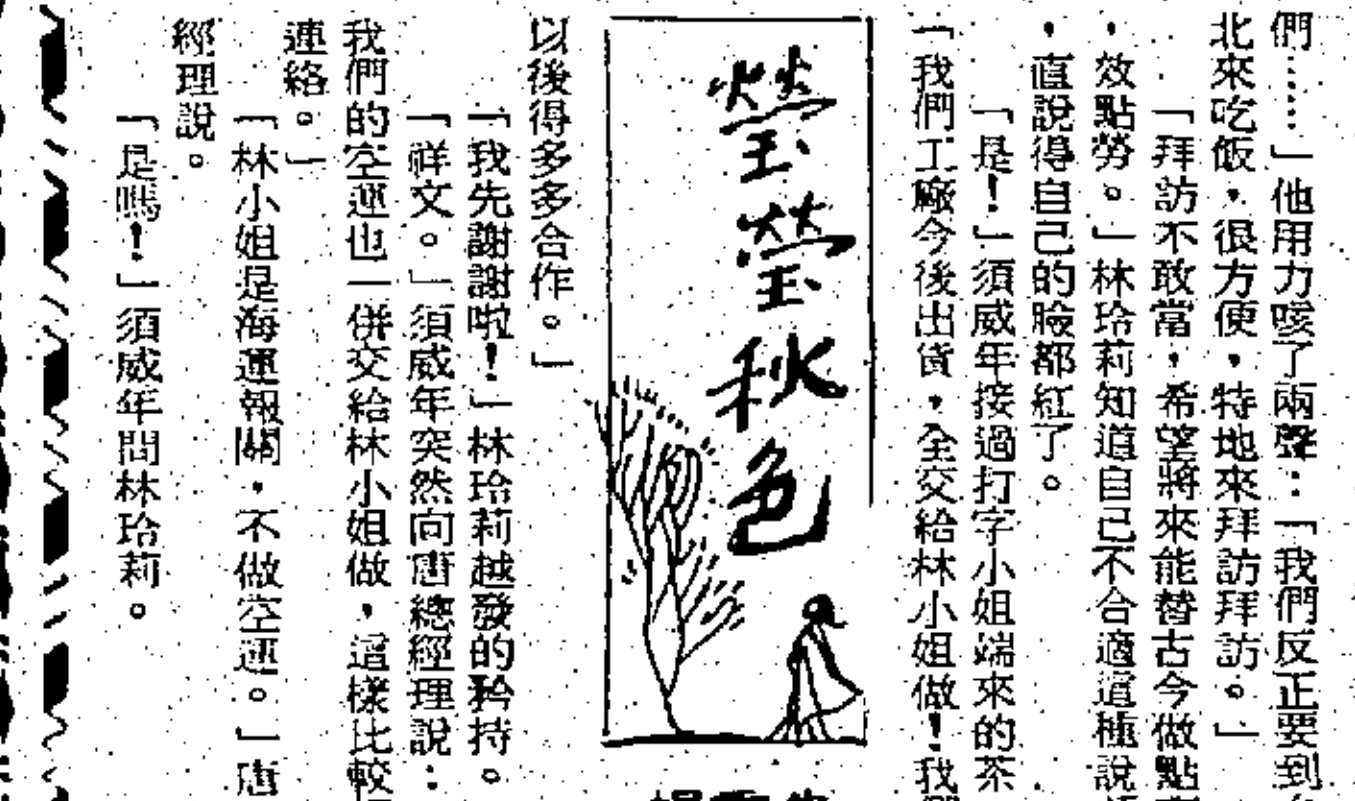 們……」他用力咳了兩聲：「我們反正要到
北來吃飯，很方便，特地來拜訪拜訪。」
「拜訪不敢當，希望將來能替古今做點
，效點勞。」林玲莉知道自己不合適這種說
，直說得自己的臉都紅了。
「是！」須威年接過打字小姐端來的茶
「我們工廠今後出貨，全交給林小姐做！我
瑩瑩秋色
以後得多多合作。」
「我先謝謝啦！」林玲莉越發的矜持。
「祥文。」須威年突然向唐總經理說：
我們的空運也一併交給林小姐做，這樣比較
連絡。」
「林小姐是海運報關，不做空運。」唐
經理說。
「是嗎！」須威年問林玲莉。